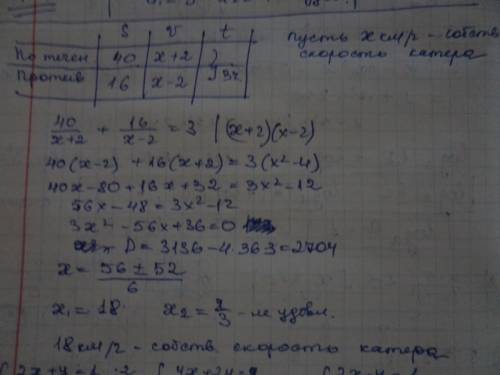 S V t
По течен 40 x+2
Против 16 x-2 3ч.
пусть x км/г - собств
скорость катера
40/(x+2) + 16/(x-2) = 3 | (x+2)(x-2)
40(x-2) + 16(x+2) = 3(x²-4)
40x-80+16x+32 = 3x²-12
56x-48 = 3x²-12
3x²-56x+36=0
D = 3136-4·36·3=2704
x = (56±52)/6
x₁ = 18 x₂ = 2/3 - не удовл.
18 км/г - собств. скорость катера